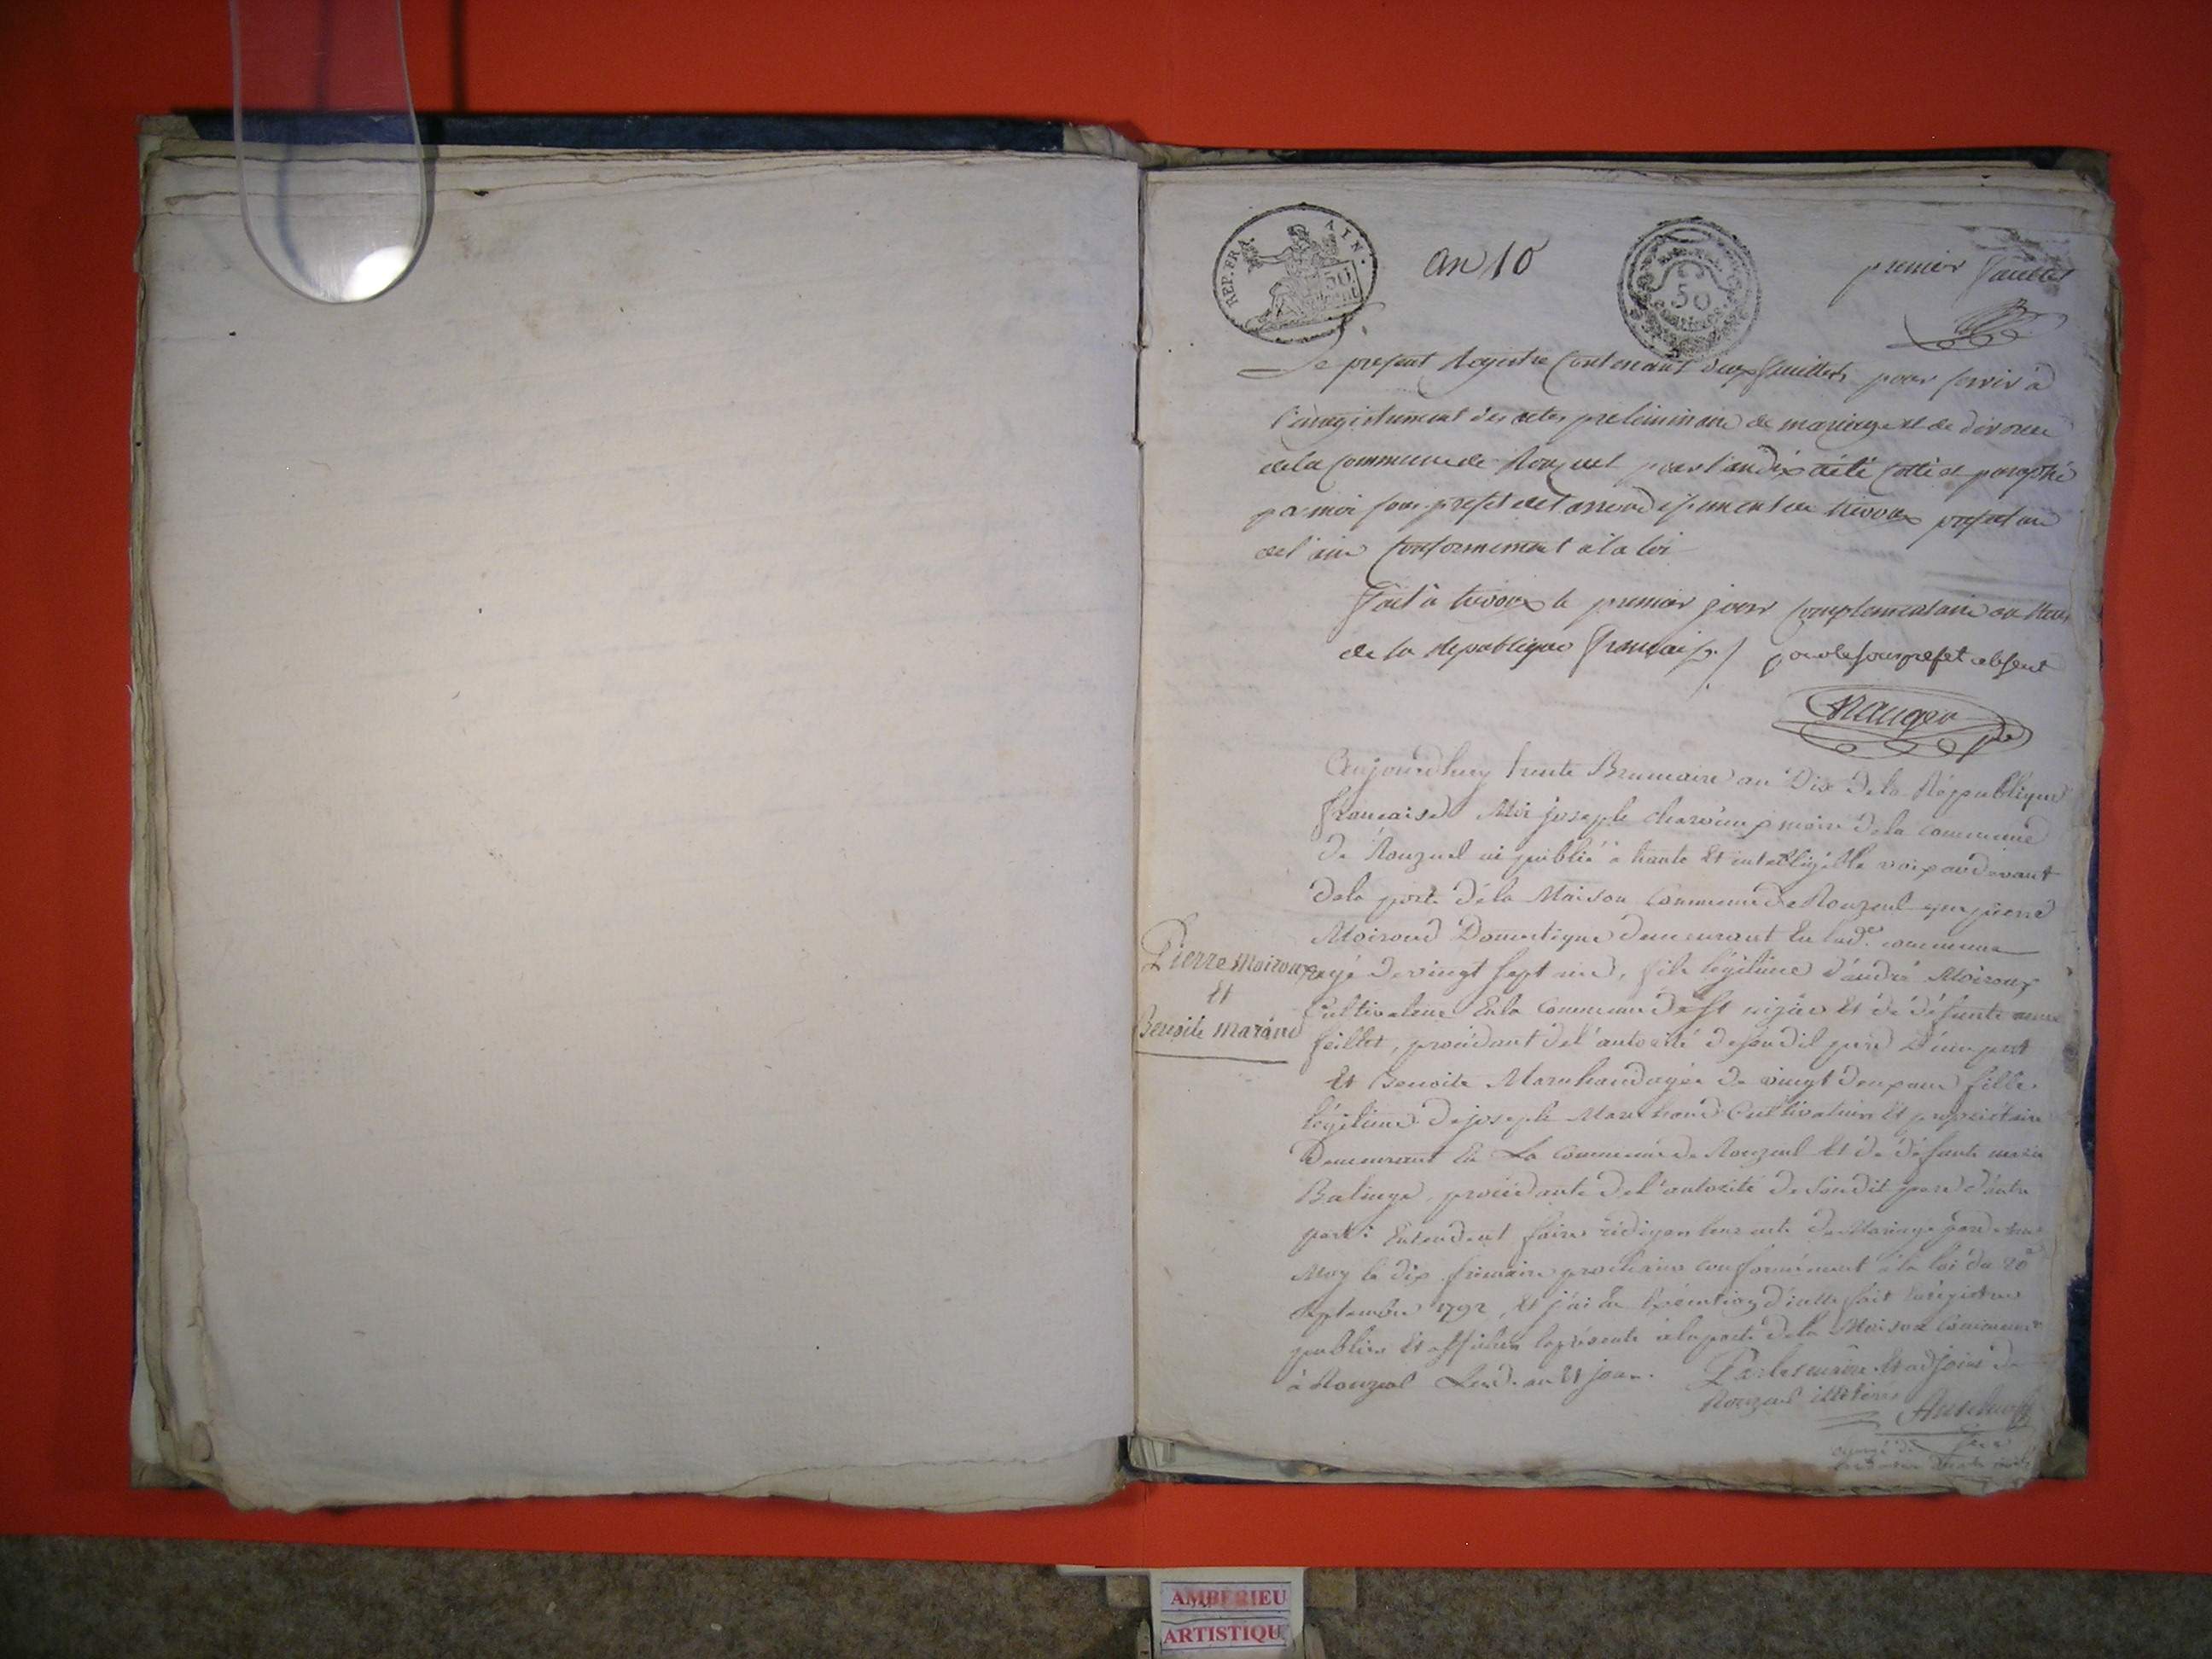 REP. FRA. AIN.
50
an 10
50
premier feuillet
Le present Registre Contenant deux feuillets pour servir a
l'enregistrement des actes preliminaire de mariage et de divorce
de la Commune de Rouzuel pour l'an dix a été cotté et paraphé
par moi sous prefet de l'arrondissement de trevoux prefecture
de l'ain Conformement a la loi
fait a trevoux le premier jour Complementaire an neuf
de la republique francaise / pour le sous prefet absent
Aujourdhuy trente Brumaire an Dix De la République
francaise Moi joseph maire De la Commune
De Rouzuel ai publié a haute Et intelligible voix audevant
De la porte De la Maison Commune De Rouzuel que pierre
Moiroud Domestique Demeurant En lad.e commune
Pierre Moiroux
agé De vingt sept ans, fils légitime d'andré Moiroux
Et
Cultivateur En la Commune De st Et De défunte
Benoite marand
feillet, procédant De l'autorité De son dit pere D'une part
Et Benoite Marchand agée De vingt Deux ans fille
légitime De joseph Marchand Cultivateur Et propriétaire
Demeurant En La Commune De Rouzuel Et De défunte
procédante De l'autorité De son dit pere D'autre
part: Entendent faire rédiger leur acte De Mariage par devant
Moy le dix frimaire prochain conformément à la loi du 20
septembre 1792, Et j'ai En Exécution D'icelle fait Enregistrer
publier Et afficher la présente à la porte De la Maison Commune
à Rouzuel Les D. an Et jour. Par les maire Et adjoint De
Rouzuel illiterés
AMBERIEU
ARTISTIQU